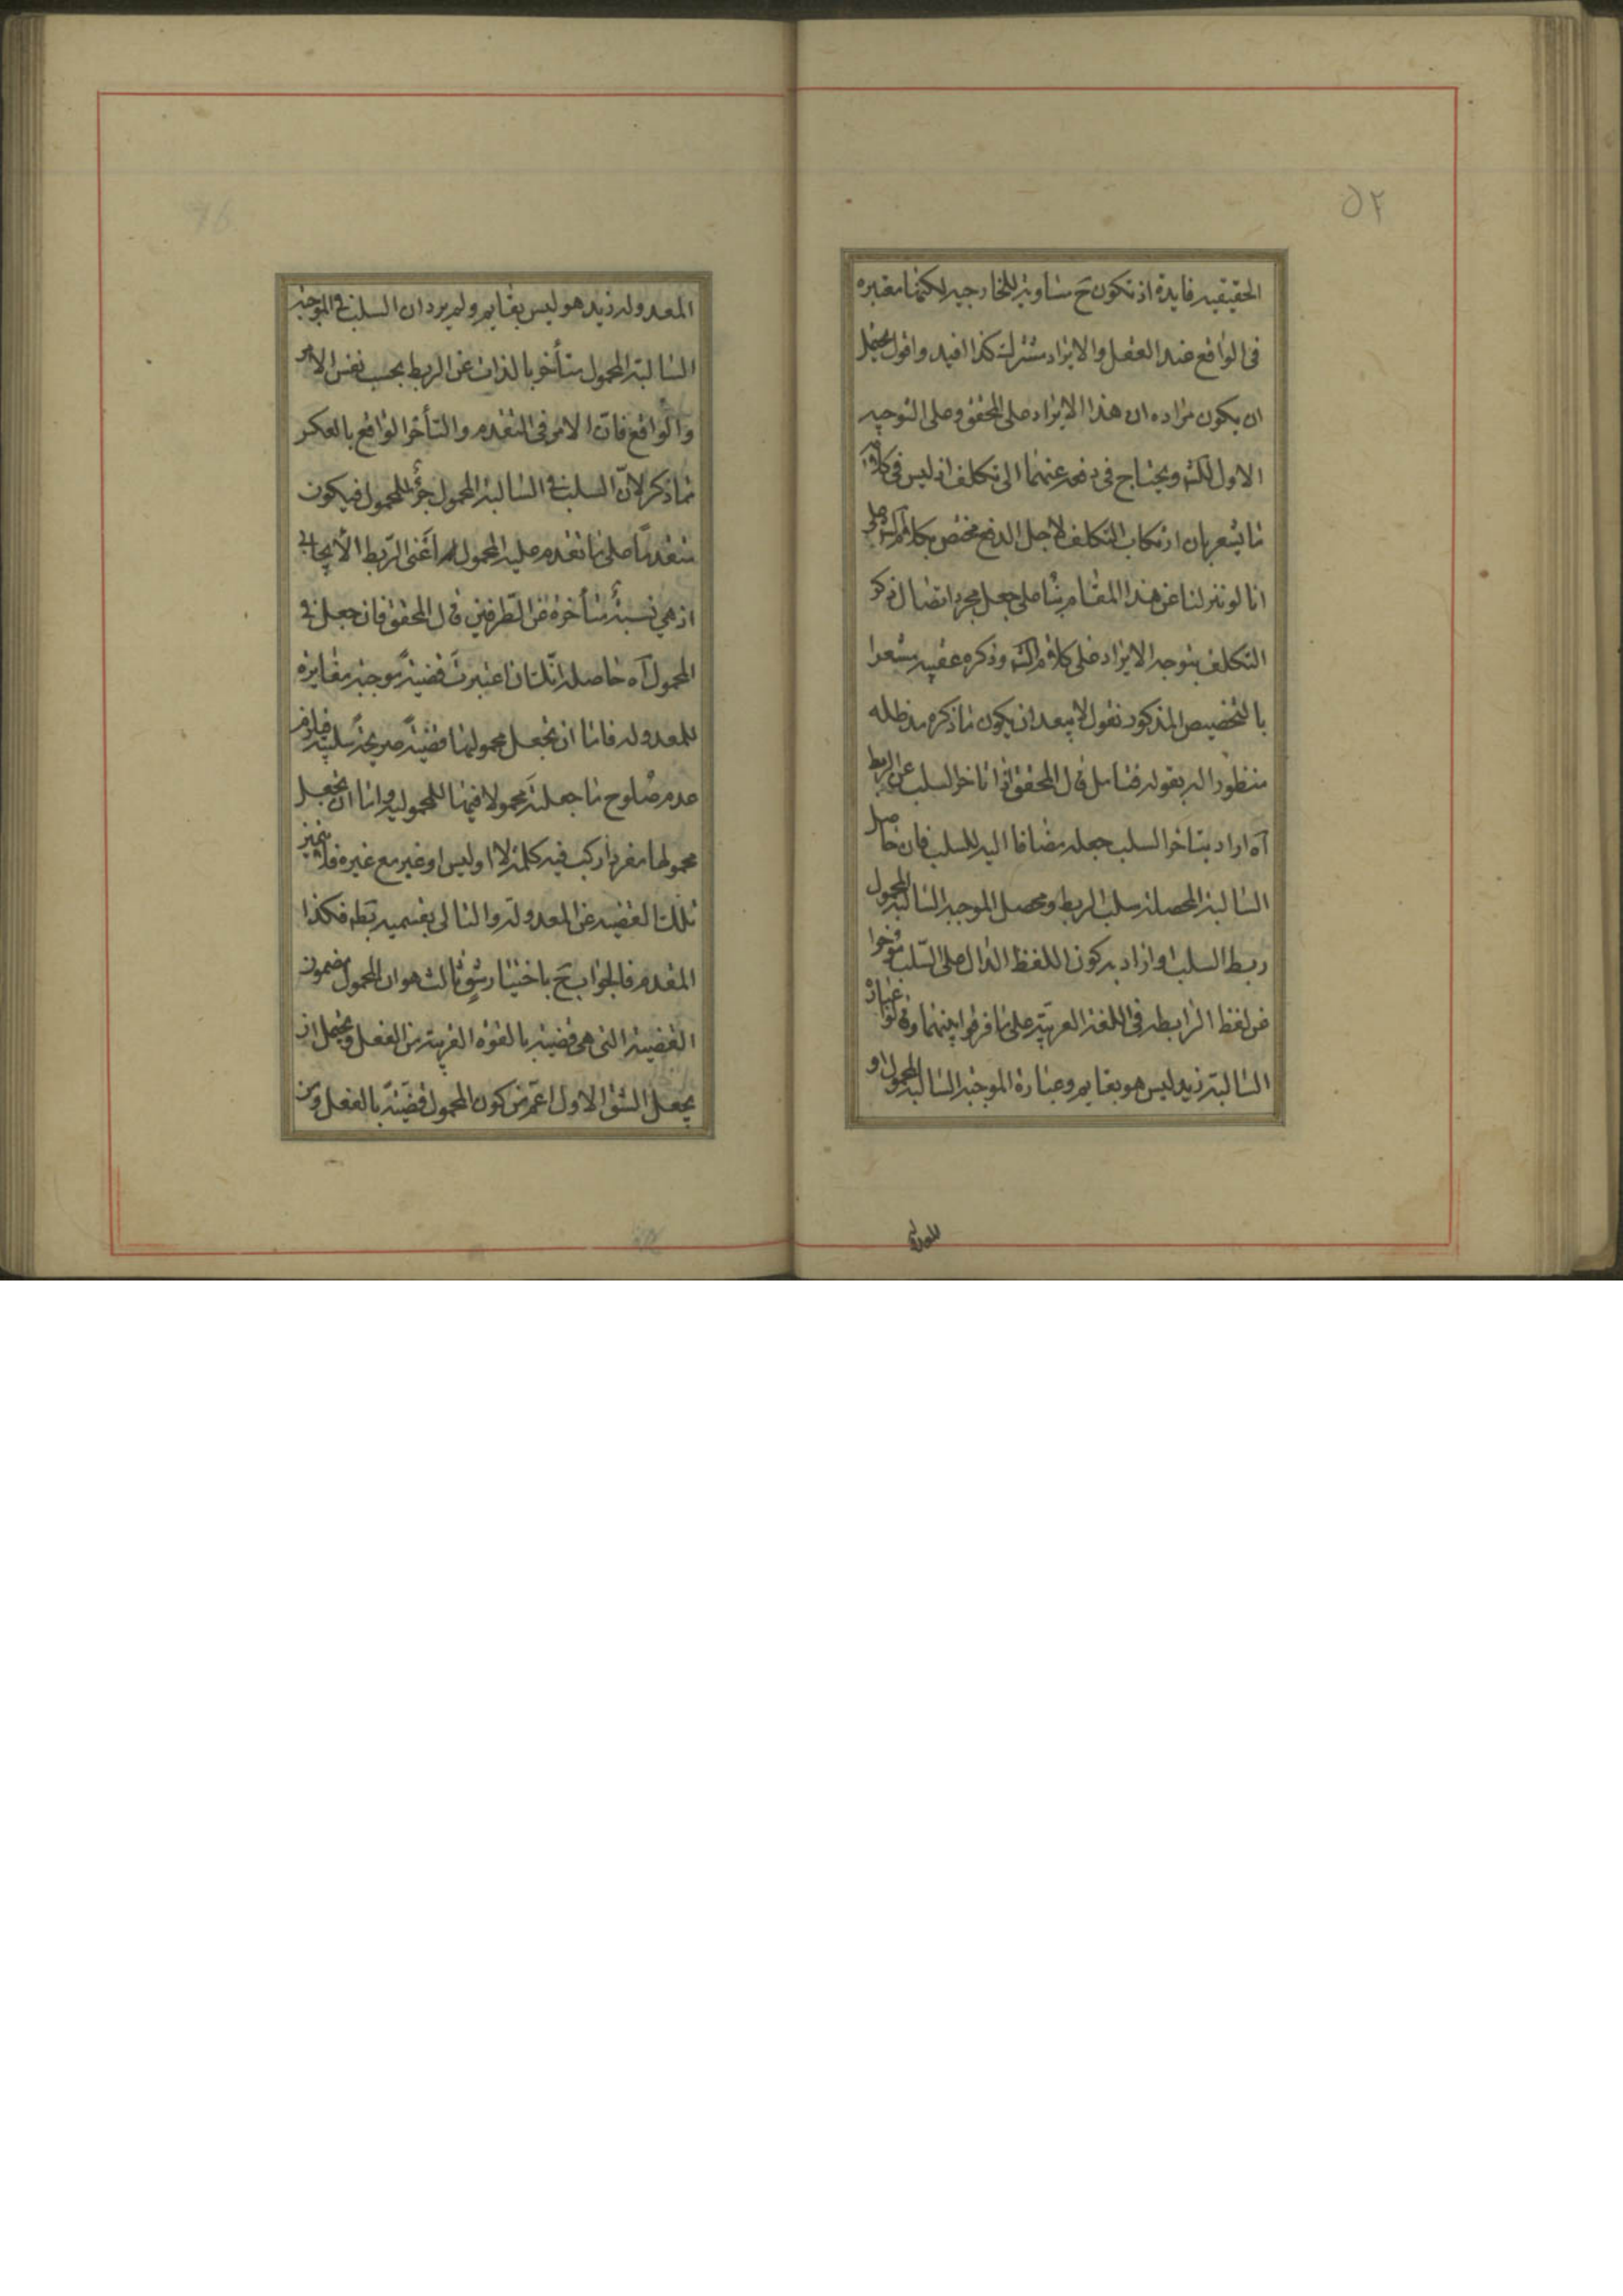 ٥٢
الحقيقيه فايدة اذ تكون ح مساويه للخارجيه لكنها معتبره
فى الواقع عند العقل والايراد مشترك كذا افيد واقول يحتمل
ان يكون مراده ان هذا الايراد على المحقق وعلى التوجيه
الاول للش ويحتاج فى دفعه عنهما الى تكلف اذ ليس فى كلامه
ما يشعر بان ارتكاب التكلف لاجل الدفع مختص بكلام الش على
انا لو تنزلنا عن هذا المقام بنا على جعل مجرد اتصال ذكر
التكلف بتوجه الايراد على كلام الش وذكره عقيبه مشعرا
بالتخصيص المذكور نقول لا يبعد ان يكون ما ذكره مد ظله
منظورا اليه بقوله فتامل قال المحقق اذا تاخر السلب عن الربط
آه اراد بتاخر السلب جعله مضافا اليه للسلب فان حاصل
السالبة المحصلة سلب الربط ومحصل الموجبه السالبة المحمول
ربط السلب او اراد به كون اللفظ الدال على السلب مؤخرا
عن لفظ الرابطه فى اللغة العربية على ما فرقوا بينهما وقالوا عبارة
السالبة زيد ليس هو بقايم وعبارة الموجبة السالبة المحمول او
المعدوله زيد هو ليس بقايم ولم يرد ان السلب فى الموجبة
السالبة المحمول متأخر بالذات عن الربط بحسب نفس الامر
والواقع فان الامر فى التقدم والتأخر الواقع بالعكس
مما ذكر لان السلب فى السالبة المحمول جزء للمحمول فيكون
متقدما على ما تقدم عليه المحمول اعنى الربط الايجابى
اذ هي نسبة متأخرة عن الطرفين قال المحقق فان جعل فى
المحمول آه حاصله انك ان اعتبرت قضية موجبة مغايره
للمعدوله فاما ان تجعل محمولها قضية صريحة سلبية فيلزم
عدم صلوح ما جعلته محمولا فيها للمحموليه واما ان تجعل
محمولها مفردا ركب فيه كلمة لا او ليس او غير مع غيره فلا يتميز
تلك القضيه عن المعدولة والتالى بقسميه بط فكذا
المقدم فالجواب ح باختيار شق ثالث هو ان المحمول مضمون
القضية التى هى قضية بالقوة القريبة من الفعل ويحتمل ان
يجعل الشق الاول اعم من كون المحمول قضية بالفعل ومن